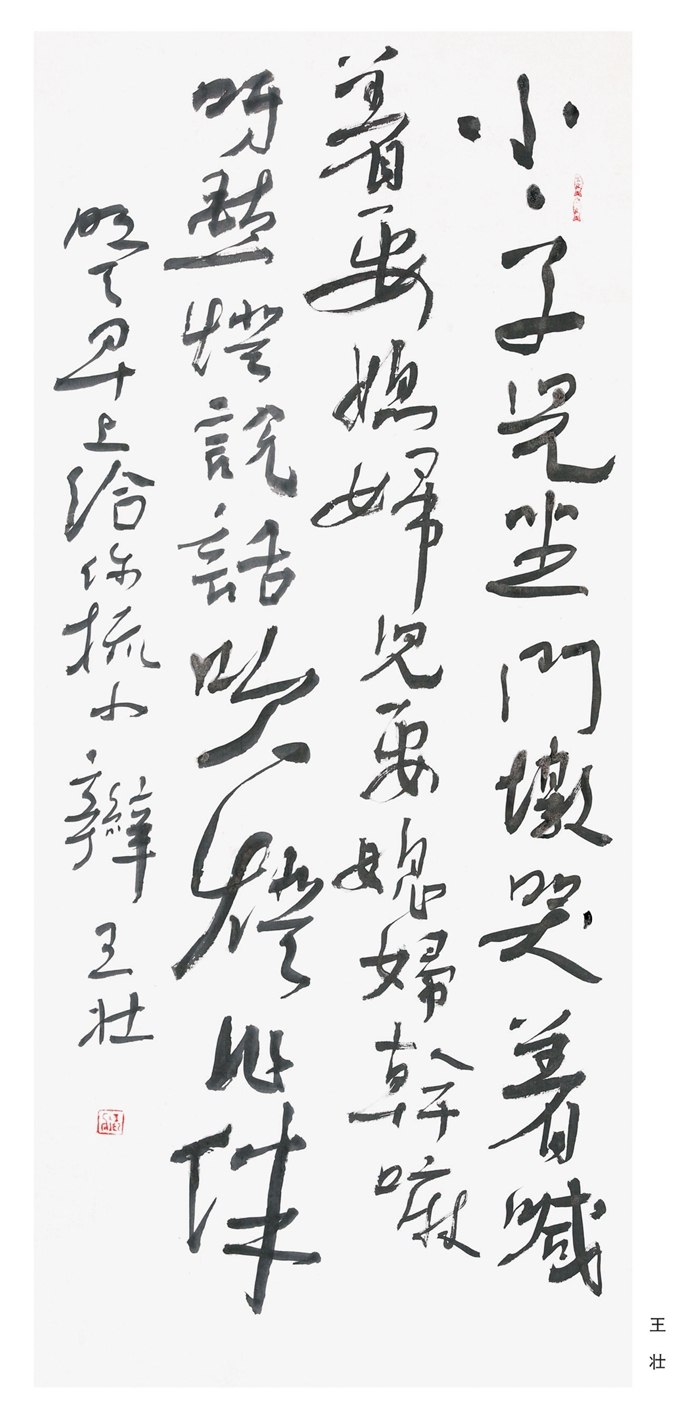 小、子兒坐門墩哭着喊
着要媳婦兒要媳婦幹嘛
呀點燈說話吹燈作伴
明天早上給你梳小辮 王壯
王壮